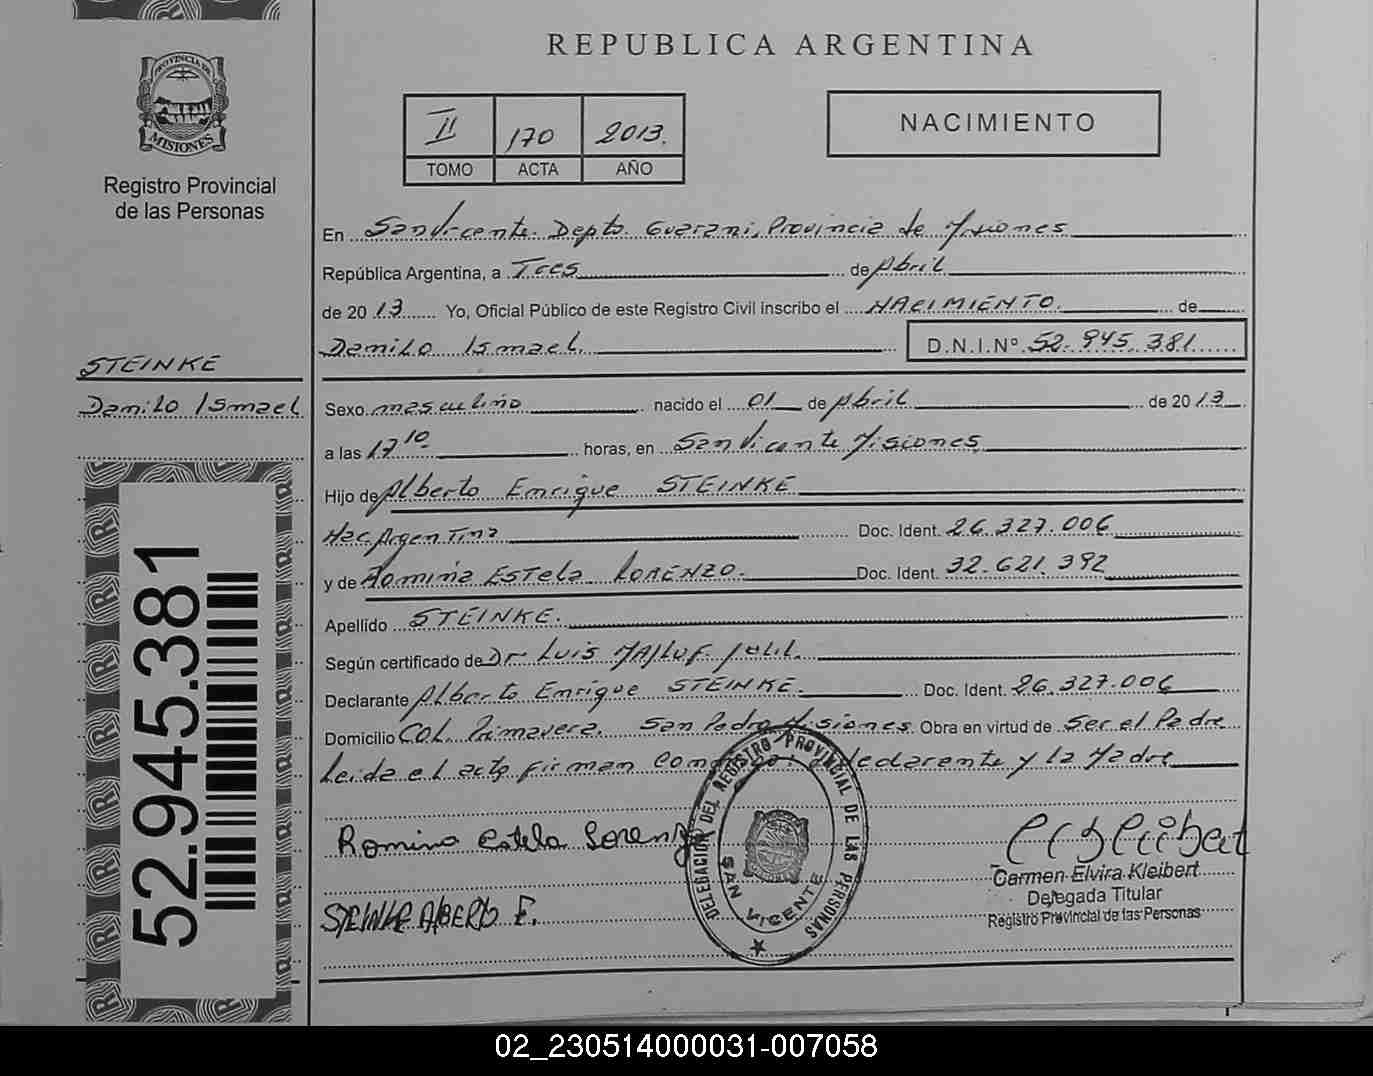 REPUBLICA ARGENTINA
PROVINCIA DE
MISIONES
Registro Provincial
de las Personas
II 170 2013.
TOMO ACTA AÑO
NACIMIENTO
En San Vicente. Depto. Guarani, Provincia de Misiones
República Argentina, a Tres de Abril
de 2013 Yo, Oficial Público de este Registro Civil inscribo el NACIMIENTO de
Danilo Ismael. D.N.I.Nº 52.945.381
STEINKE
Danilo Ismael
Sexo masculino nacido el 01 de Abril de 2013
a las 17 10 horas, en San Vicente Misiones
Hijo de Alberto Enrique STEINKE
Nac Argentina Doc. Ident. 26.327.006
y de Romina Estela LORENZO. Doc. Ident. 32.621.392
Apellido STEINKE.
Según certificado de Dr Luis
Declarante Alberto Enrique STEINKE. Doc. Ident. 26.327.006
Domicilio COL. Primavera. San Pedro Misiones Obra en virtud de Ser el Padre
Leida el acta firman declarante y la Madre
52.945.381
Romina Estela Lorenzo
STEINKE ALBERTO E.
DELEGACION DEL REGISTRO PROVINCIAL DE LAS PERSONAS
SAN VICENTE
Carmen Elvira Kleibert
Delegada Titular
Registro Provincial de las Personas
02_230514000031-007058